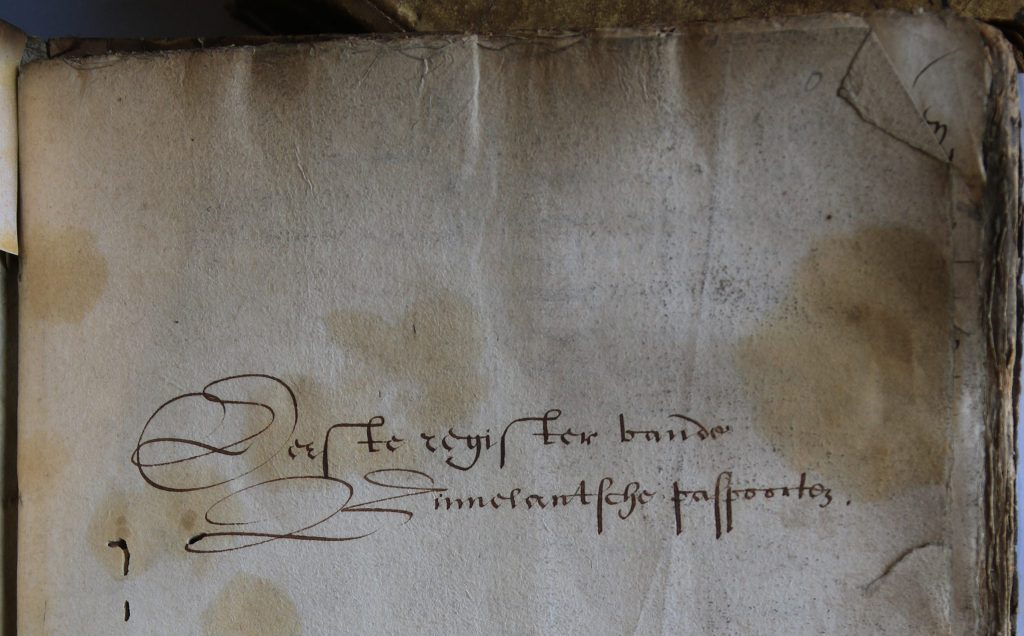 Eerste register vande
Binnelantsche paspoorten.